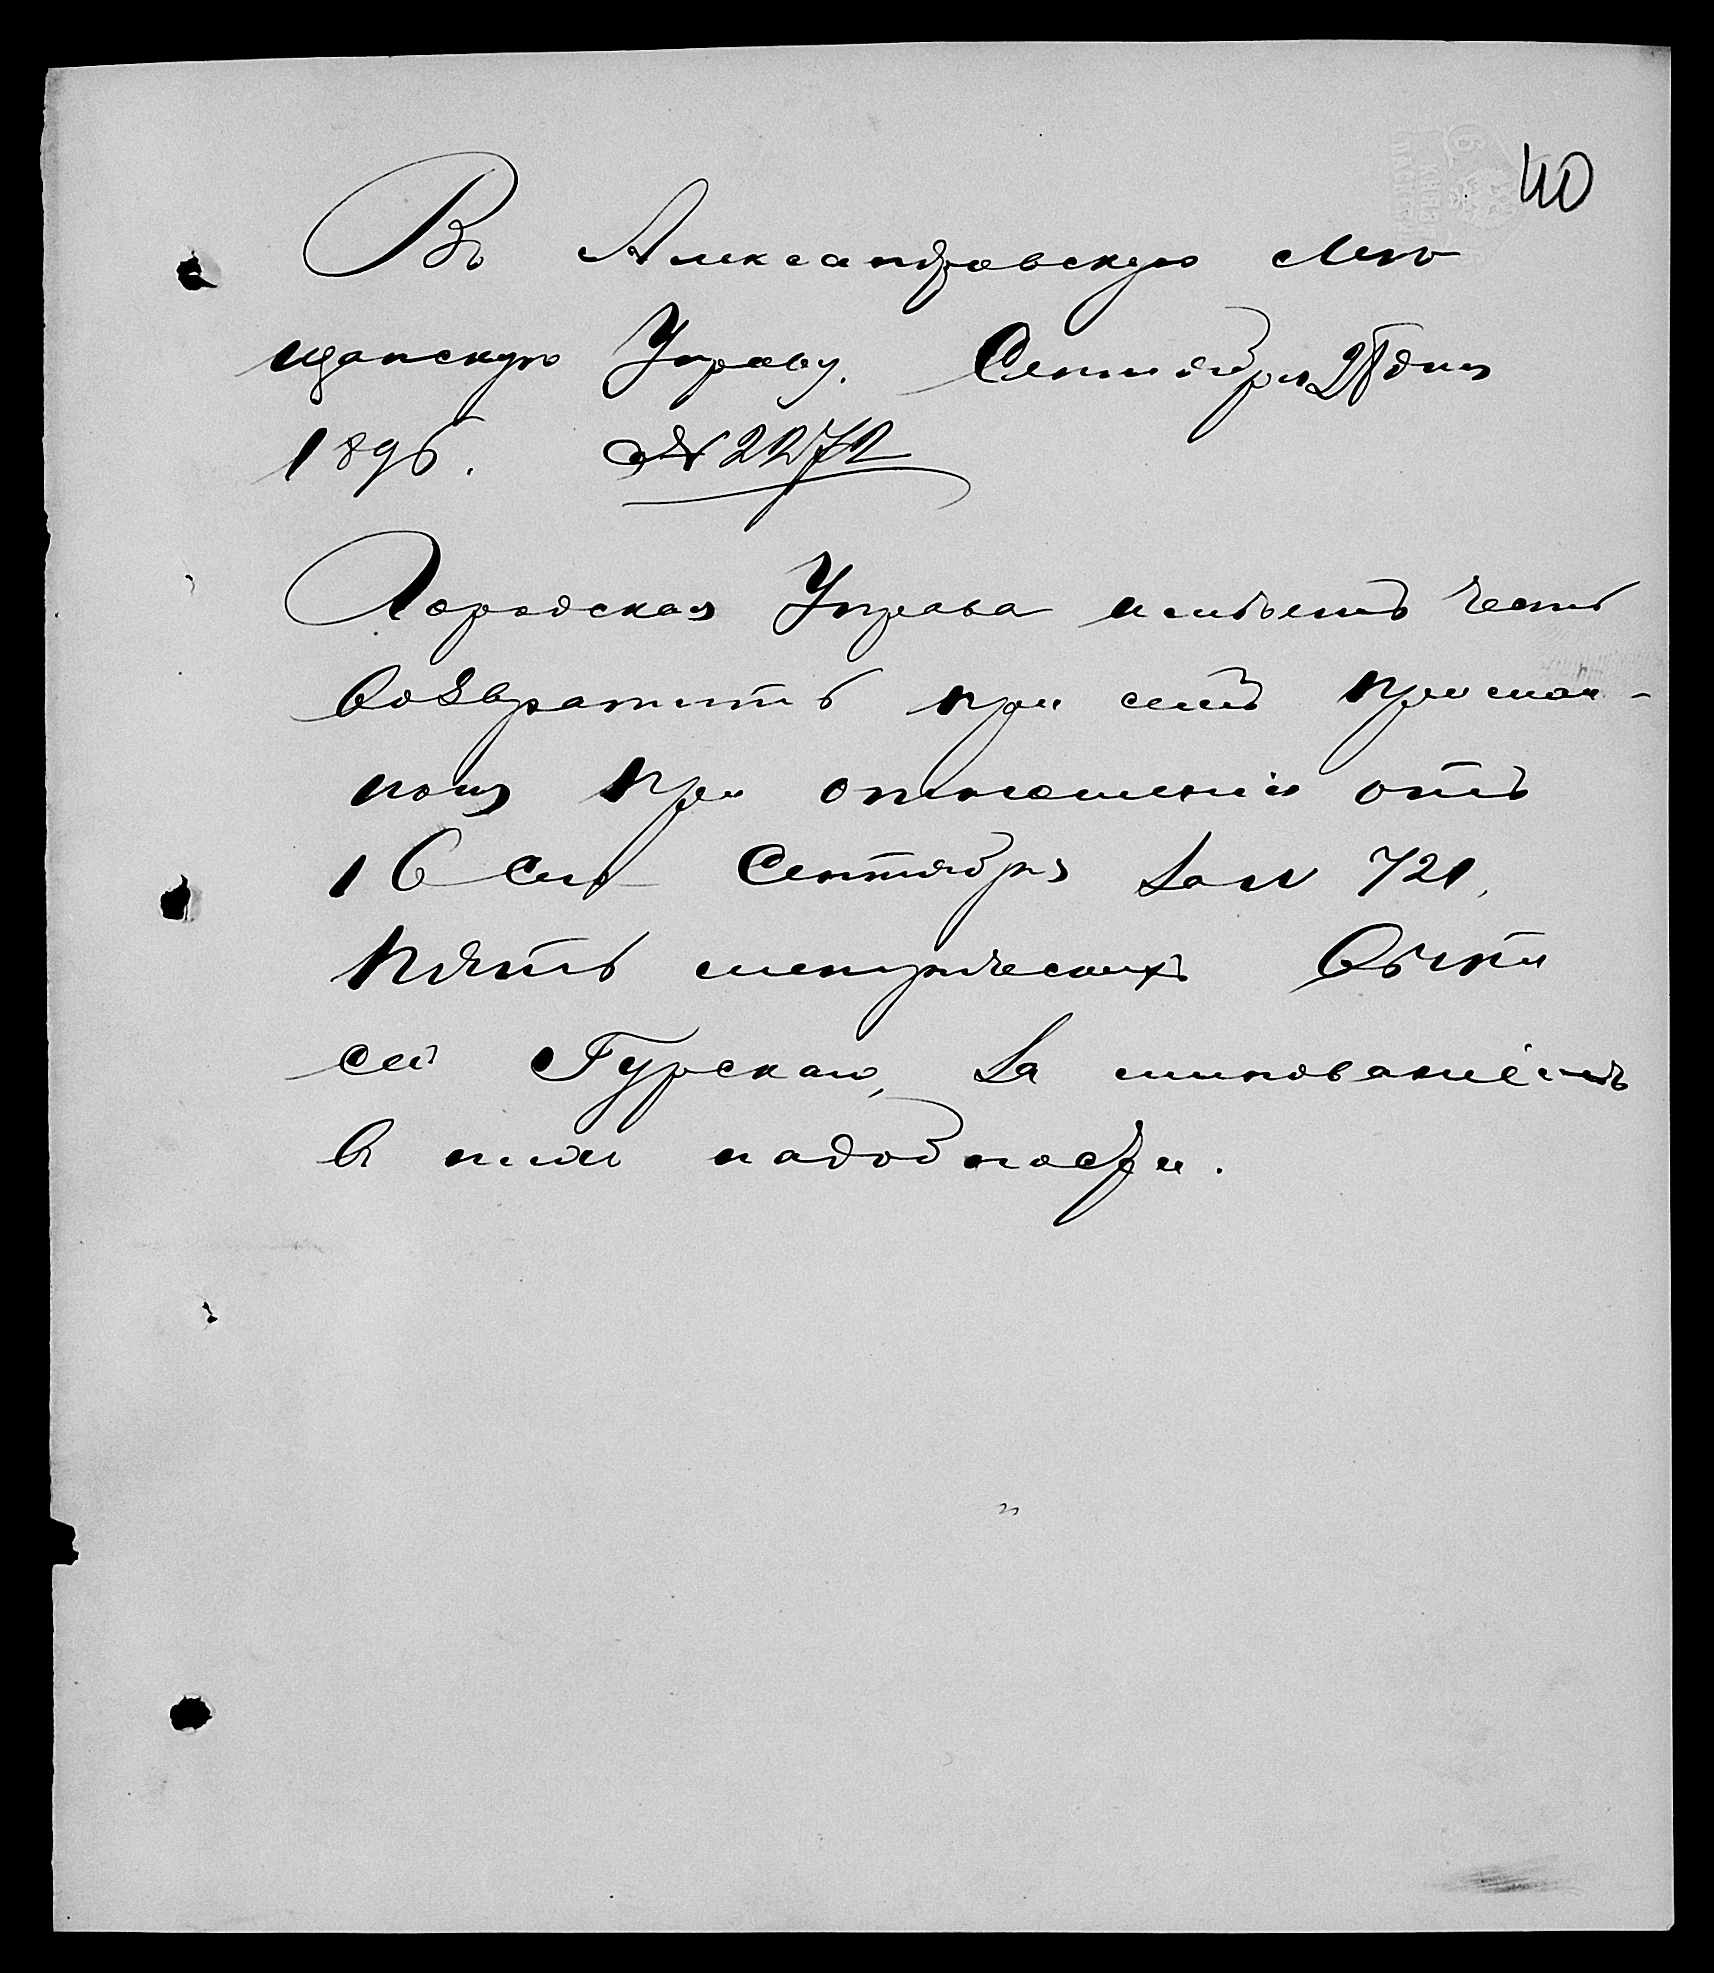 40
Въ Александровскую Мѣ
щанскую Управу. Сентября 28 дня
1896. № 2272
Городская Управа имѣетъ честь
возвратить при семъ прислан-
ные при отношеніи отъ
16 сего Сентября за № 721,
пять метрическихъ выпи
сей Гурскаго, за минованіемъ
въ нихъ надобности.